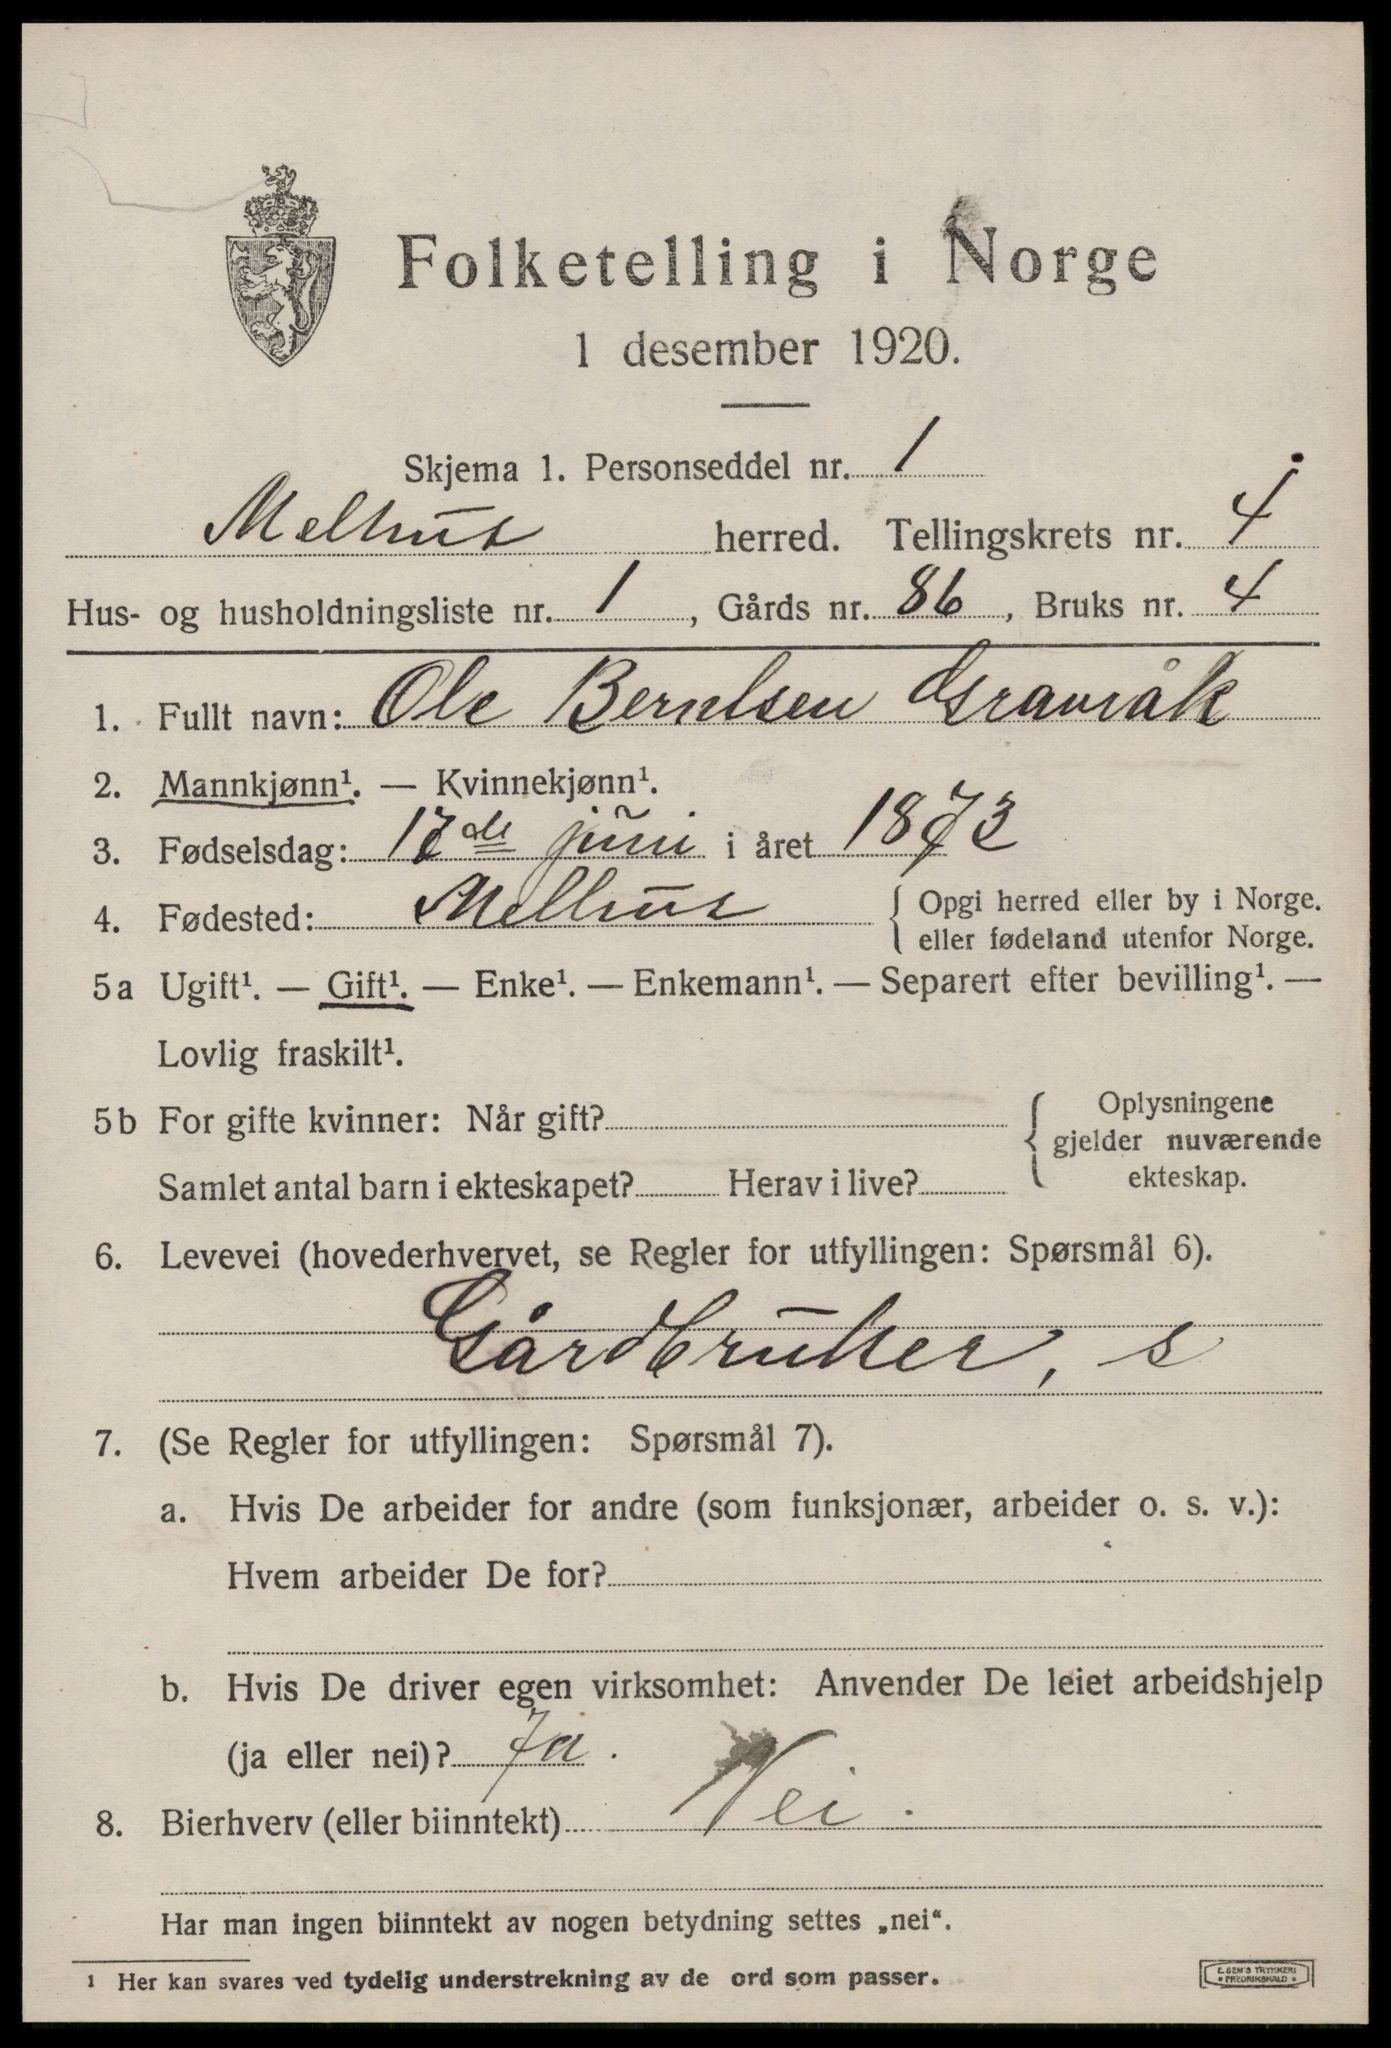 Folketelling i Norge
1 desember 1920.
Skjema 1. Personseddel nr. 1
Melhus herred. Tellingskrets nr. 4
Hus- og husholdningsliste nr. 1, Gårds nr. 86, Bruks nr. 4
1. Fullt navn: Ole Berntsen Gravråk
2. Mannkjønn¹. — Kvinnekjønn¹.
3. Fødselsdag: 17de juni i året 1873
4. Fødested: Melhus { Opgi herred eller by i Norge.
eller fødeland utenfor Norge.
5a Ugift¹. — Gift¹. — Enke¹. — Enkemann¹. — Separert efter bevilling¹. —
Lovlig fraskilt¹.
5b For gifte kvinner: Når gift? { Oplysningene
gjelder nuværende
Samlet antal barn i ekteskapet? Herav i live? ekteskap.
6. Levevei (hovederhvervet, se Regler for utfyllingen: Spørsmål 6).
Gårdbruker, s
7. (Se Regler for utfyllingen: Spørsmål 7).
a. Hvis De arbeider for andre (som funksjonær, arbeider o. s. v.):
Hvem arbeider De for?
b. Hvis De driver egen virksomhet: Anvender De leiet arbeidshjelp
(ja eller nei)? Ja.
8. Bierhverv (eller biinntekt) Nei.
Har man ingen biinntekt av nogen betydning settes „nei“.
¹ Her kan svares ved tydelig understrekning av de ord som passer.
E. SEM'S TRYKKERI
• FREDRIKSHALD •